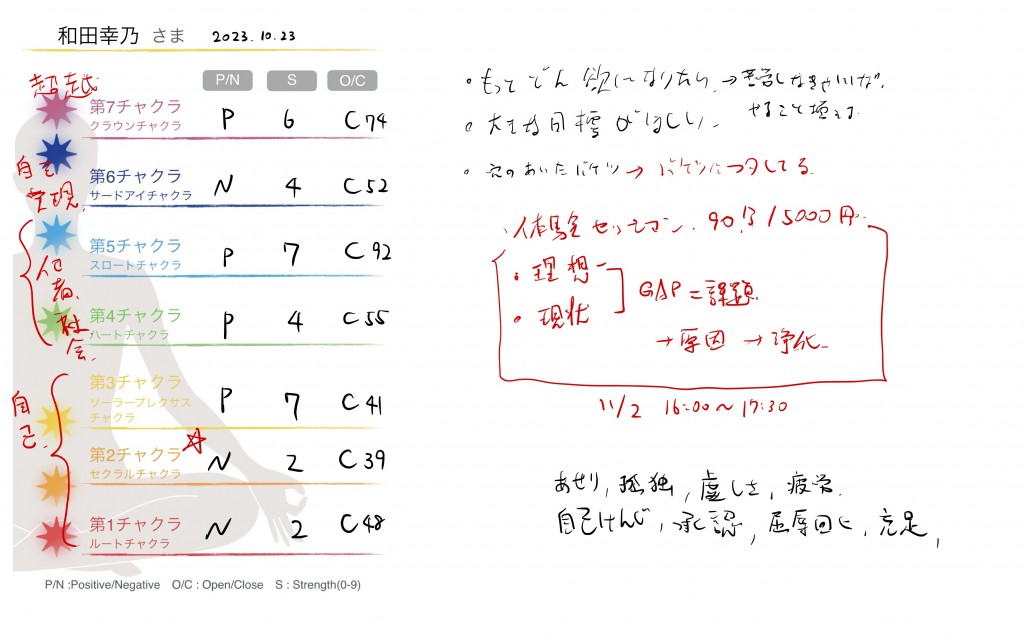 和田幸乃 さま 2023.10.23
P/N S O/C
超越
第7チャクラ P 6 C74
クラウンチャクラ
自己
実現
第6チャクラ N 4 C52
サードアイチャクラ
第5チャクラ P 7 C92
スロートチャクラ
他者
社会
第4チャクラ P 4 C55
ハートチャクラ
自己
第3チャクラ P 7 C41
ソーラープレクサス
チャクラ
第2チャクラ N 2 C39
セクラルチャクラ
第1チャクラ N 2 C48
ルートチャクラ
P/N :Positive/Negative O/C : Open/Close S : Strength(0-9)
・もっと どん欲になりたい →
やること増える
・大きな目標がほしい
・穴のあいたバケツ → バケツにフタしてる
・体験セッション 90分/5000円
・理想
・現状
GAP = 課題
→原因 →浄化
11/2 16:00~17:30
あせり, 孤独, 虚しさ, 疲労
自己けんじ, 承認, 屈辱回ひ, 充足,